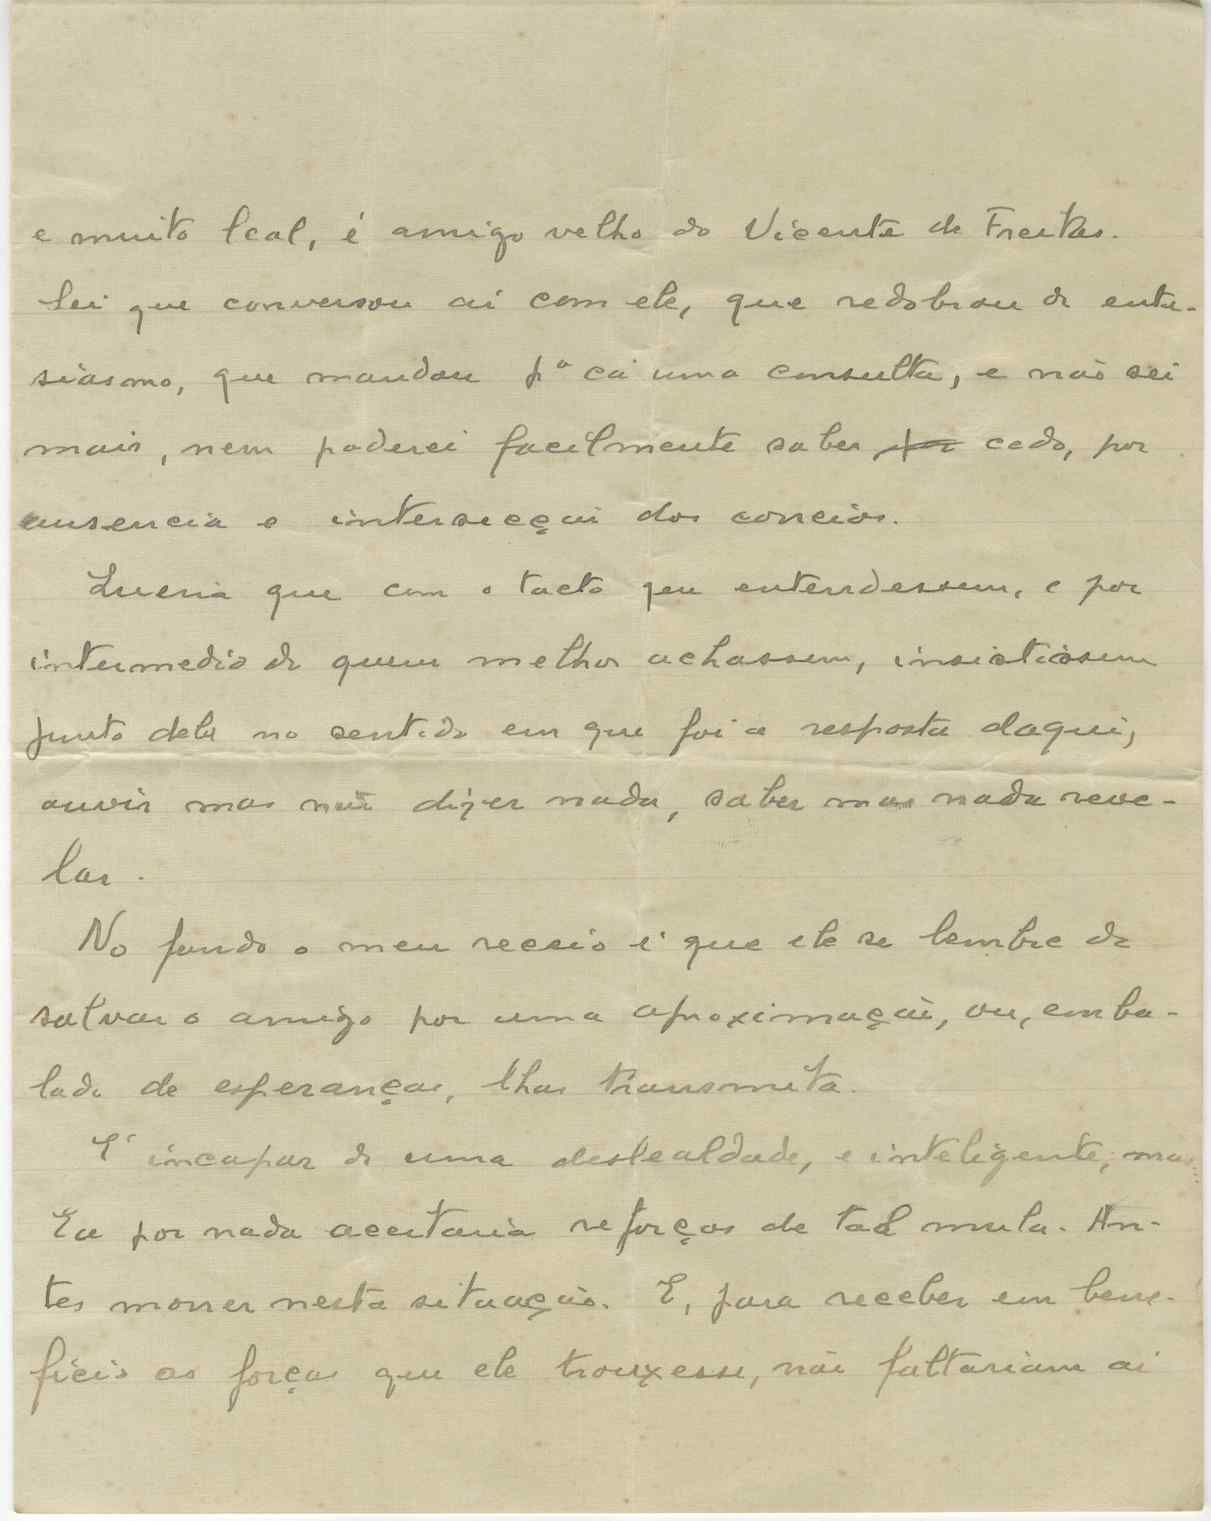 e muito leal, é amigo velho do Vicente de Freitas.
Sei que conversou aí com ele, que redobrou de entu-
siasmo, que mandou pª cá uma consulta, e não sei
mais, nem poderei facilmente saber cedo, por
ausencia e intersecção dos correios.
Queria que com o tacto que entendessem, e por
intermedio de quem melhor achassem, insistissem
junto dele no sentido em que foi a resposta daqui,
ouvir mas não dizer nada, saber mas nada reve-
lar.
No fundo o meu receio é que ele se lembre de
salvar o amigo por uma aproximação, ou, emba-
lado de esperanças, lhas transmita.
É incapaz de uma deslealdade, e inteligente, mas...
Eu por nada aceitaria reforços de tal mula. An-
tes morrer nesta situação. E, para receber em bene-
ficio as forças que ele trouxesse, não faltariam aí